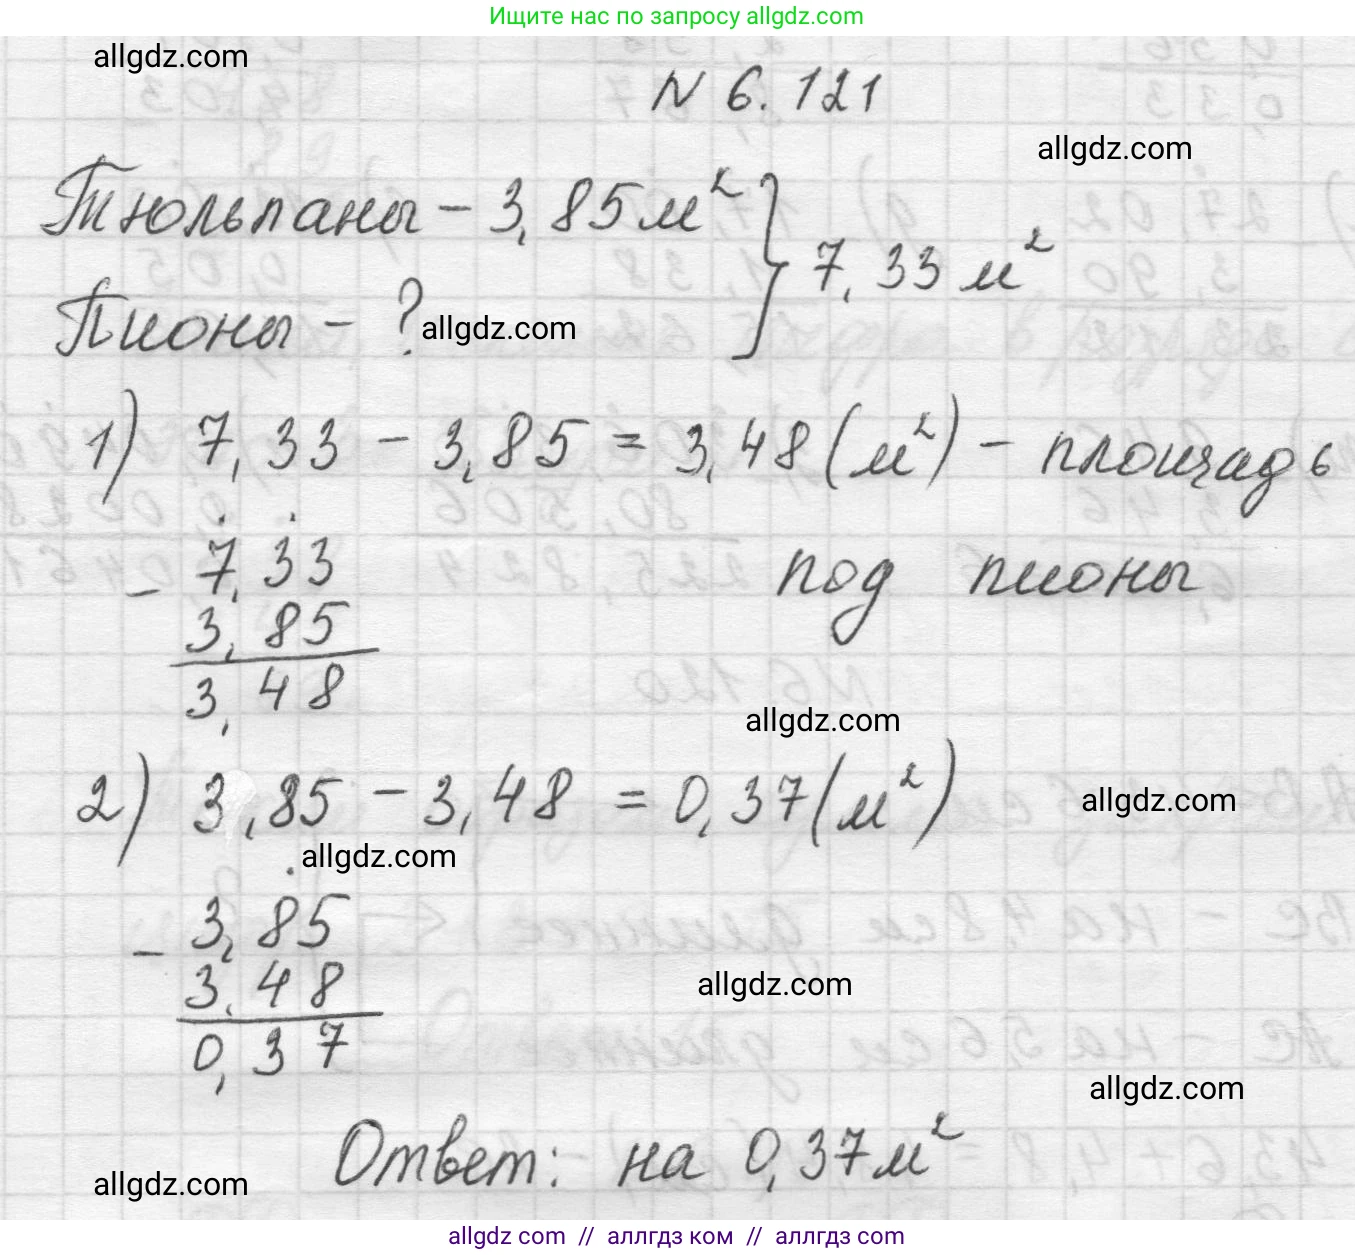 Ищите нас по запросу allgdz.com
allgdz.com
N 6.121
allgdz.com
Тюльпаны – 3,85 м²
7,33 м²
Пионы – ?
allgdz.com
1) 7,33 – 3,85 = 3,48 (м²) – площадь
под пионы
– 7,33
3,85
3,48
allgdz.com
2) 3,85 – 3,48 = 0,37 (м²)
allgdz.com
allgdz.com
– 3,85
3,48
0,37
allgdz.com
allgdz.com
Ответ: на 0,37 м²
allgdz.com
allgdz.com // аллгдз ком // аллгдз com